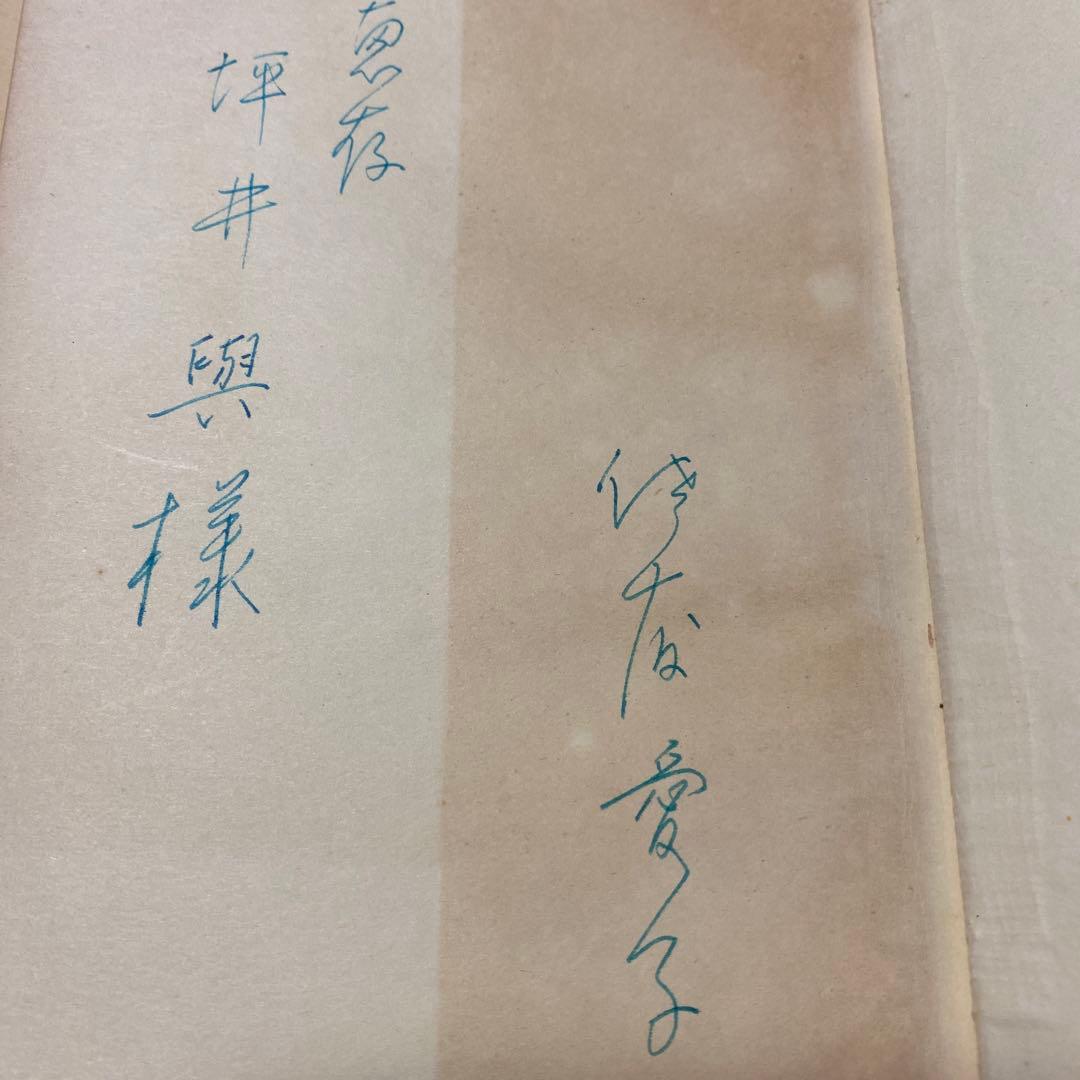 愛子
恵存
坪井與様